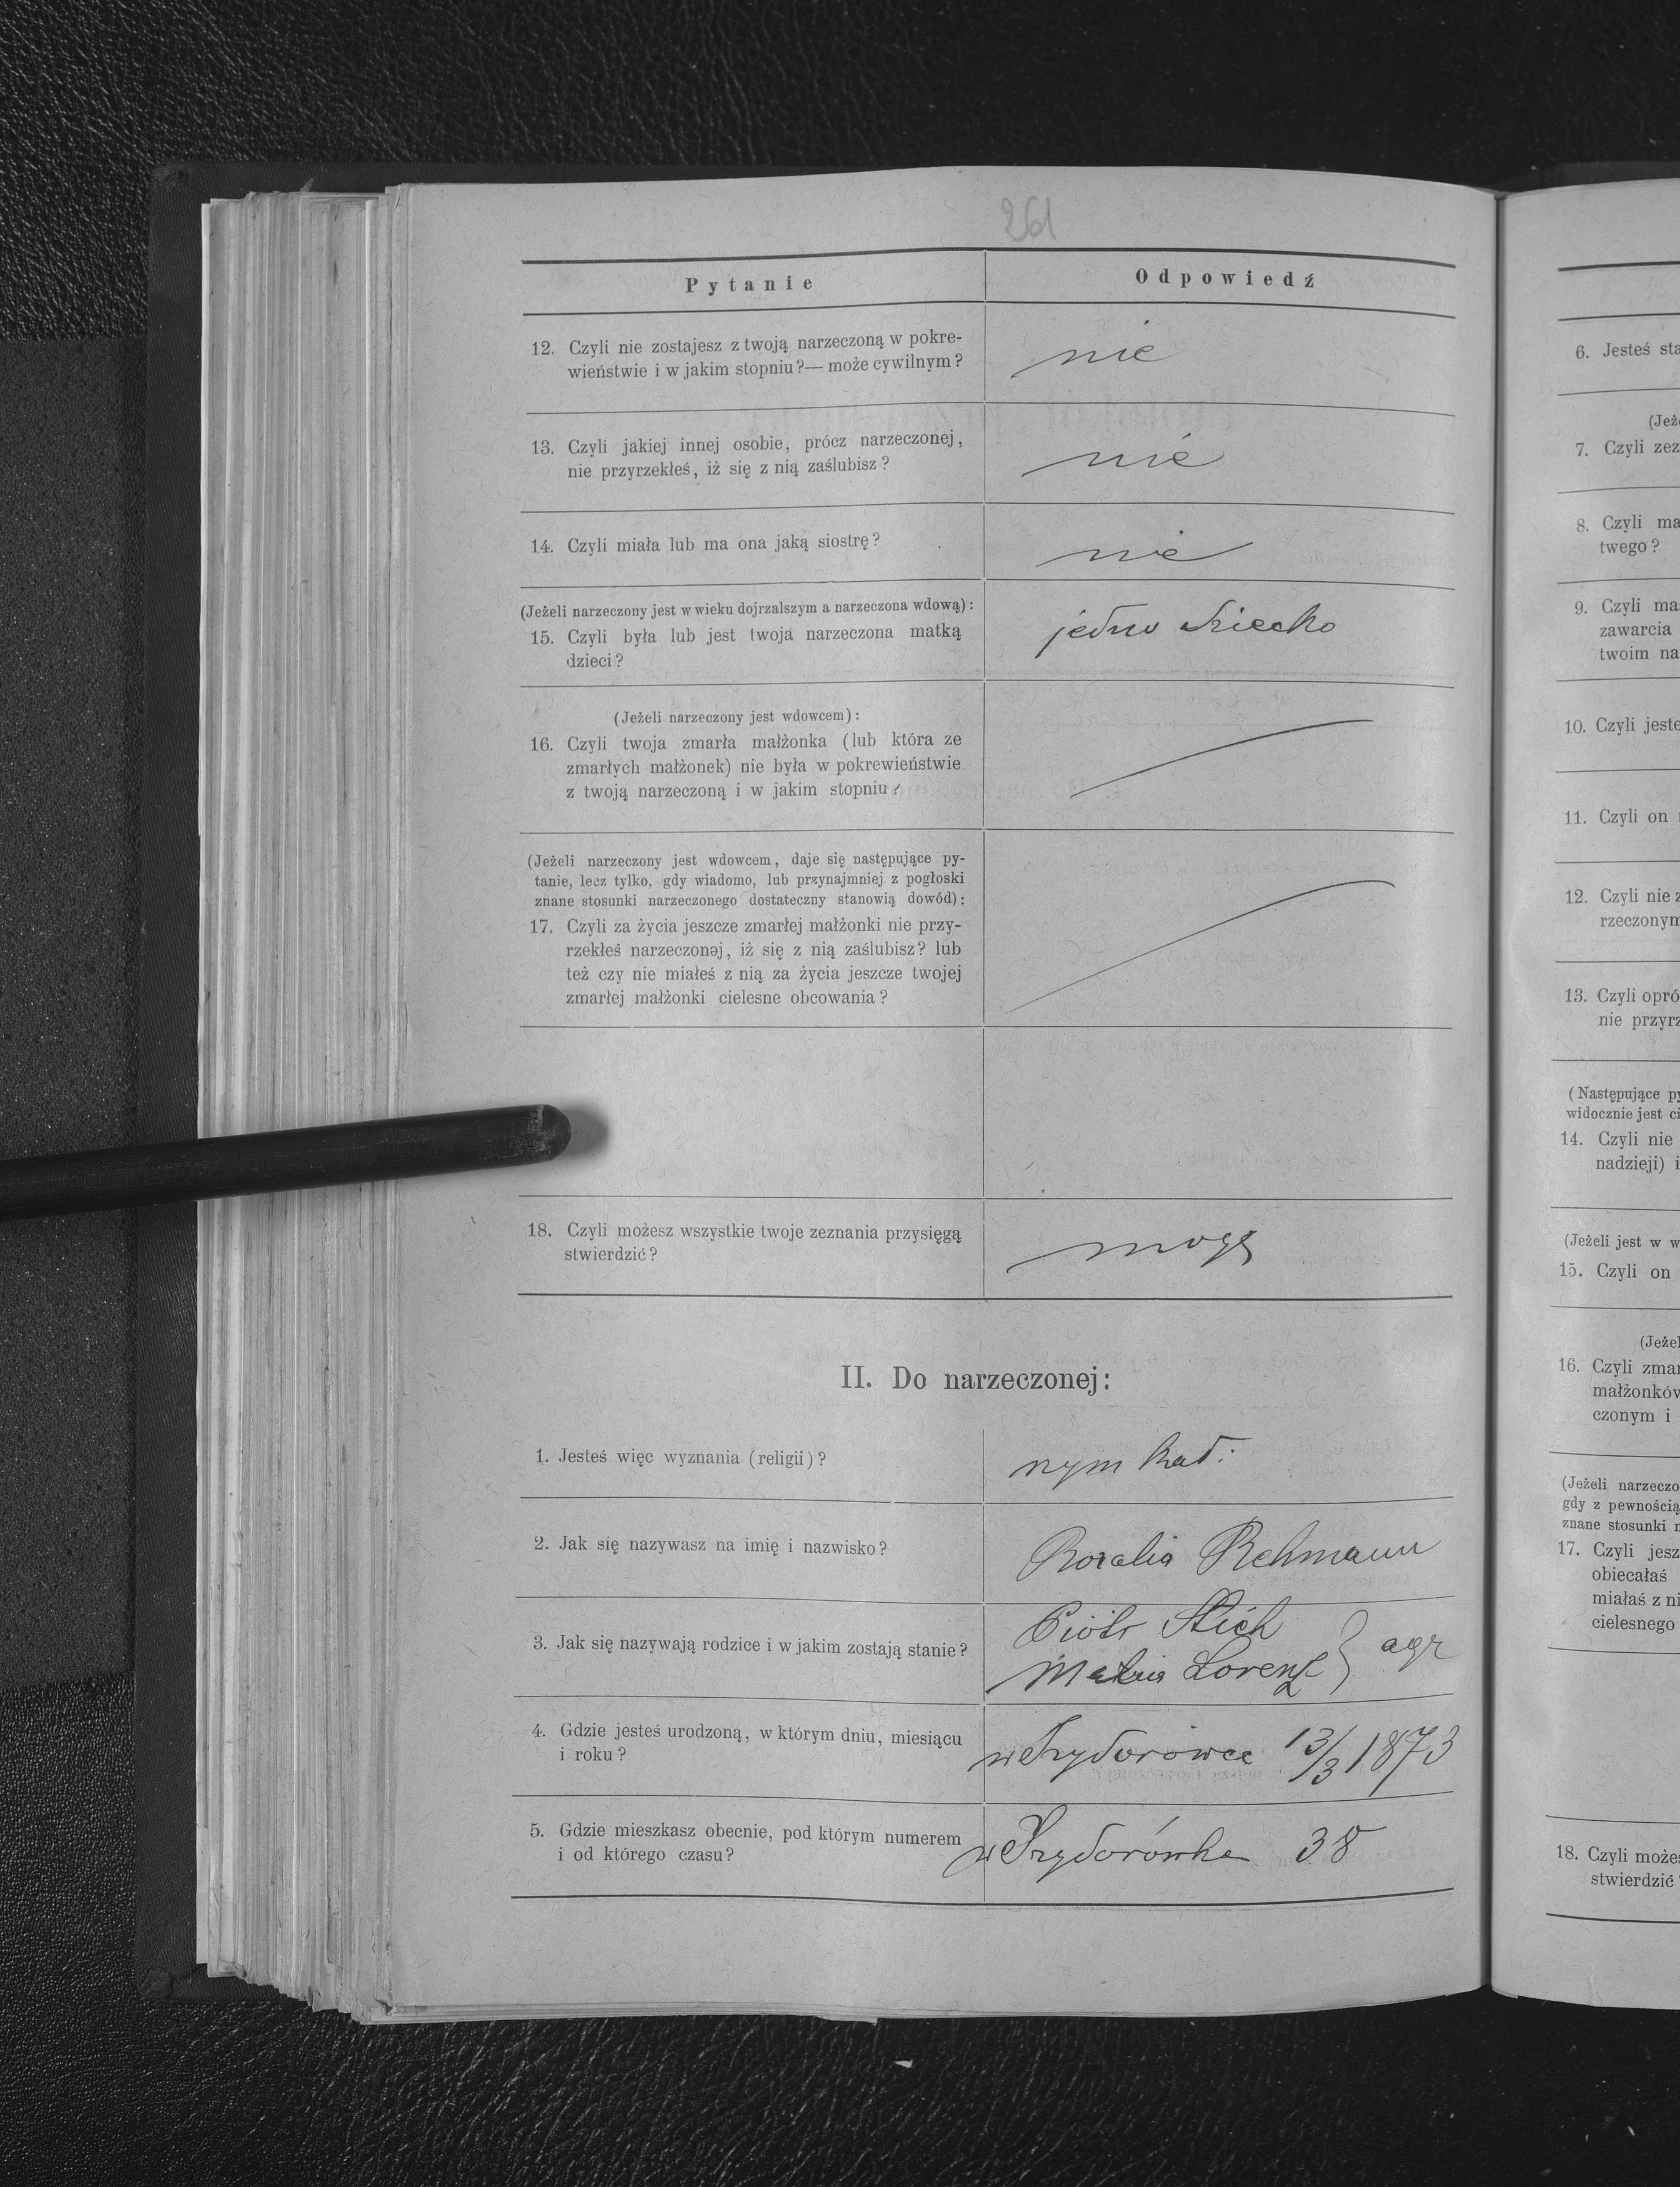 261
Pytanie
Odpowiedź
12. Czyli nie zostajesz z twoją narzeczoną w pokre-
wieństwie i w jakim stopniu?— może cywilnym?
nie
13. Czyli jakiej innej osobie, prócz narzeczonej,
nie przyrzekłeś, iż się z nią zaślubisz?
nie
14. Czyli miała lub ma ona jaką siostrę?
nie
(Jeżeli narzeczony jest w wieku dojrzalszym a narzeczona wdową):
15. Czyli była lub jest twoja narzeczona matką
dzieci?
jedno dziecko
(Jeżeli narzeczony jest wdowcem):
16. Czyli twoja zmarła małżonka (lub która ze
zmarłych małżonek) nie była w pokrewieństwie
z twoją narzeczoną i w jakim stopniu?
(Jeżeli narzeczony jest wdowcem, daje się następujące py-
tanie, lecz tylko, gdy wiadomo, lub przynajmniej z pogłoski
znane stosunki narzeczonego dostateczny stanowią dowód):
17. Czyli za życia jeszcze zmarłej małżonki nie przy-
rzekłeś narzeczonej, iż się z nią zaślubisz? lub
też czy nie miałeś z nią za życia jeszcze twojej
zmarłej małżonki cielesne obcowania?
18. Czyli możesz wszystkie twoje zeznania przysięgą
stwierdzić?
mogę
II. Do narzeczonej:
1. Jesteś więc wyznania (religii)?
rzym kat:
2. Jak się nazywasz na imię i nazwisko?
Rozalia Rehmann
3. Jak się nazywają rodzice i w jakim zostają stanie?
Piotr Stich
Maria Lorenz } agr
4. Gdzie jesteś urodzoną, w którym dniu, miesiącu
i roku?
w Izydorówce 13/3 1873
5. Gdzie mieszkasz obecnie, pod którym numerem
i od którego czasu?
w Izydorówka 38
6. Jesteś sta
(Jeże
7. Czyli zez
8. Czyli ma
twego?
9. Czyli ma
zawarcia
twoim na
10. Czyli jeste
11. Czyli on
12. Czyli nie z
rzeczonym
13. Czyli opró
nie przyrz
(Następujące py
widocznie jest ci
14. Czyli nie
nadzieji) i
(Jeżeli jest w w
15. Czyli on
(Jeżel
16. Czyli zmar
małżonków
czonym i
(Jeżeli narzeczo
gdy z pewnością
znane stosunki n
17. Czyli jesz
obiecałaś
miałaś z ni
cielesnego
18. Czyli może
stwierdzić